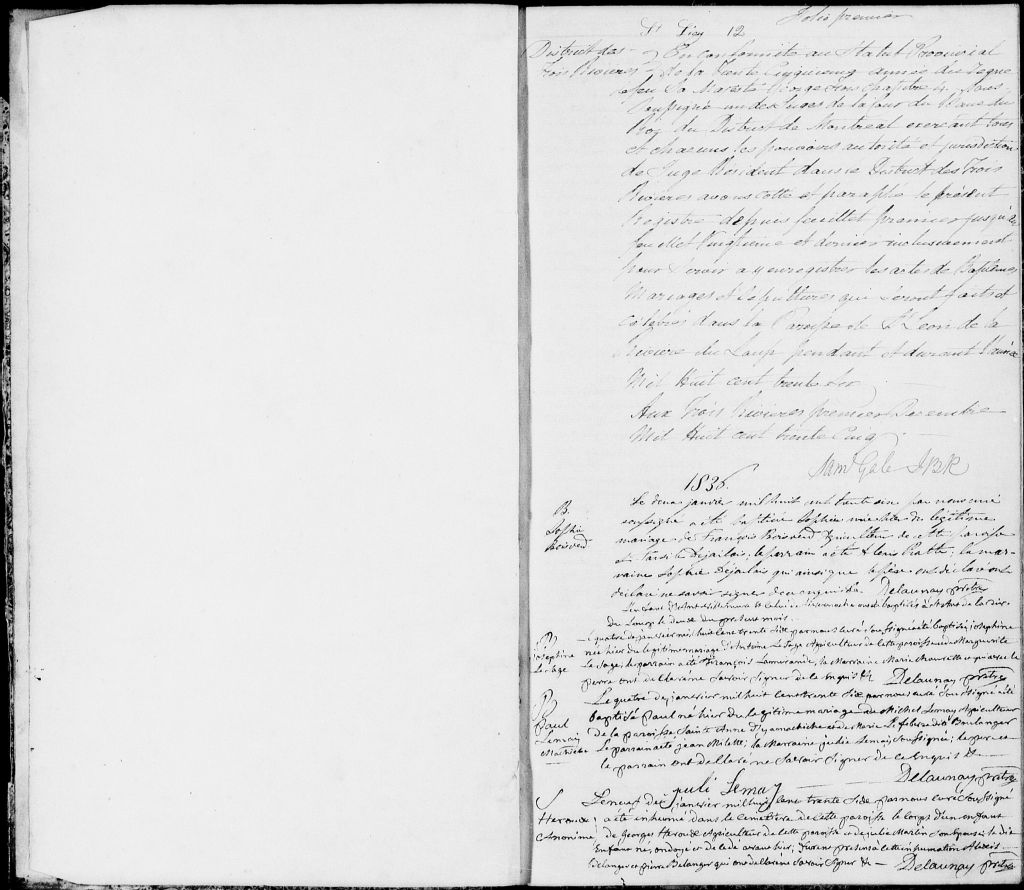 Folio premier
St Léon 12
District des
Trois Rivières
En conformité au Statut Provincial
de la trente cinquieme année du Regne
feu Sa Majesté George Trois chapitre 4. Nous
Soussigné un des Juges de la Cour du Banc du
Roy du District de Montreal exercant tous
et chacuns les pouvoirs autorité et jurisdiction
de Juge Resident dans le District des Trois
Rivieres avons cotté et paraphé le présent
Registre depuis feuillet premier jusqu'au
feuillet Vingtieme et dernier inclusivement
pour servir a y enregistrer les actes de Baptêmes
Mariages et Sepultures qui seront faits et
célébrés dans la Paroisse de St Leon de la
Riviere du Loup pendant et durant l'année
Mil Huit cent trente Six
Aux Trois Rivieres premier Decembre
Mil Huit cent trente Cinq
Saml Gale J B R
1836.
B.
Sophie
Boisverd
Le deux janvier mil huit cent trente six par nous curé
soussigné a été baptisée Sophie née hier du légitime
mariage de François Boisverd Agriculteur de cette paroisse
et Tarsile Dejarlais, le parrain a été Alexis Ratté, la mar-
raine Sophie Dejarlais qui ainsi que le père ont déclaré
ne savoir signer de ce enquis. Delaunay prêtre
du Loup le deux du present mois.
B
Josephine
Le Sage
Le quatre de janvier mil huit cent trente Six par nous curé Soussigné a été baptisée Josephine
née hier du légitime mariage d'Antoine Le Sage Agriculteur de cette paroisse et de Marguerite
Le Sage, le parrain a été François Lamirande, la Marraine Marie qui avec le
pere ont declaré ne Savoir Signer de ce enquis &c Delaunay prêtre
B
Paul
Lemay
Machiche
Le quatre de janvier mil huit cent trente Six par nous curé Soussigné a été
baptisé Paul né hier du legitime mariage de Michel Lemay Agriculteur
de la paroisse Sainte Anne d'Yamachiche et de Marie Lefebvre dit Boulanger
Le parrain a été jean Milette; la Marraine julie Lemay Soussignée; le pere et
le parrain ont declaré ne Savoir Signer de ce enquis &c
Delaunay prêtre
juli Lemay
S
Heroux
Anonime
Le neuf de janvier mil huit cent trente Six par nous curé Soussigné
a été inhumé dans le cemetière de cette paroisse le corps d'un enfant
de Georges Heroux Agriculteur de cette paroisse et de julie Martin Son Epouse, le dit
Enfant né, ondoyé et decedé avant hier; furent presens a cette inhumation Alexis
Belanger et pierre Belanger qui ont declaré ne Savoir Signer &c Delaunay prêtre